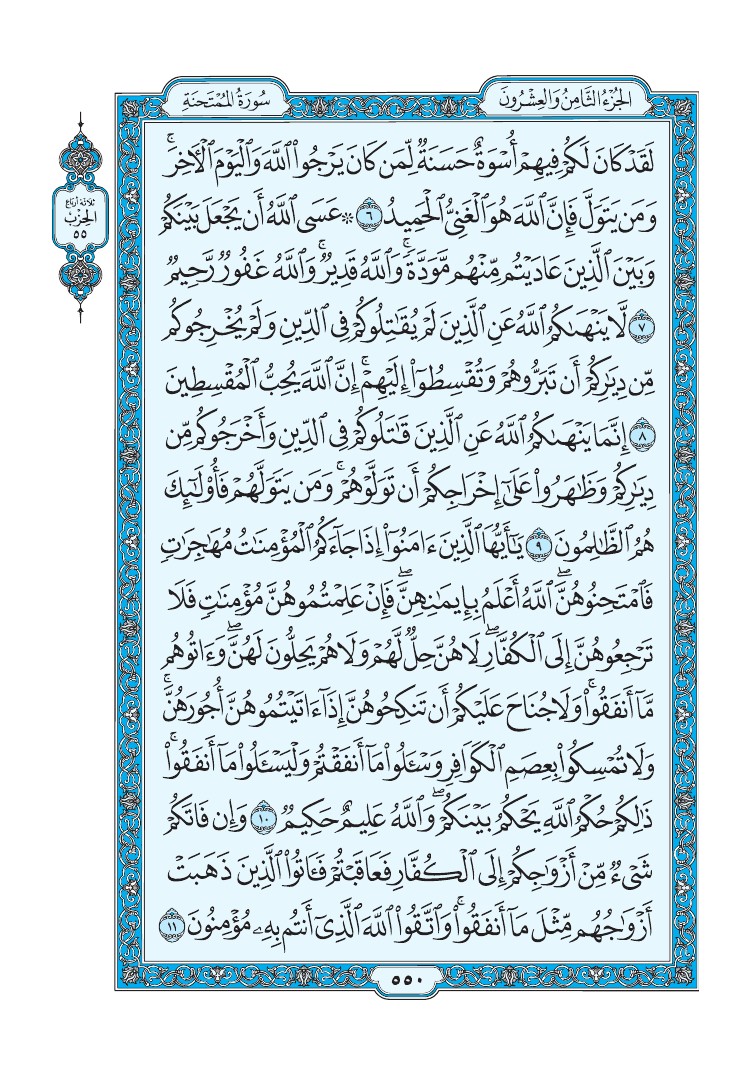 الجُزْءُ الثَّامِنُ وَالعِشْرُونَ
سُورَةُ المُمْتَحنَةِ
ثلاثة أرباع
الحِزْب
٥٥
لَقَدۡ كَانَ لَكُمۡ فِيهِمۡ أُسۡوَةٌ حَسَنَةٞ لِّمَن كَانَ يَرۡجُواْ ٱللَّهَ وَٱلۡيَوۡمَ ٱلۡأٓخِرَۚ
وَمَن يَتَوَلَّ فَإِنَّ ٱللَّهَ هُوَ ٱلۡغَنِيُّ ٱلۡحَمِيدُ ٦ ۞ عَسَى ٱللَّهُ أَن يَجۡعَلَ بَيۡنَكُمۡ
وَبَيۡنَ ٱلَّذِينَ عَادَيۡتُم مِّنۡهُم مَّوَدَّةٗۚ وَٱللَّهُ قَدِيرٞۚ وَٱللَّهُ غَفُورٞ رَّحِيمٞ
٧ لَّا يَنۡهَىٰكُمُ ٱللَّهُ عَنِ ٱلَّذِينَ لَمۡ يُقَٰتِلُوكُمۡ فِي ٱلدِّينِ وَلَمۡ يُخۡرِجُوكُم
مِّن دِيَٰرِكُمۡ أَن تَبَرُّوهُمۡ وَتُقۡسِطُوٓاْ إِلَيۡهِمۡۚ إِنَّ ٱللَّهَ يُحِبُّ ٱلۡمُقۡسِطِينَ
٨ إِنَّمَا يَنۡهَىٰكُمُ ٱللَّهُ عَنِ ٱلَّذِينَ قَٰتَلُوكُمۡ فِي ٱلدِّينِ وَأَخۡرَجُوكُم مِّن
دِيَٰرِكُمۡ وَظَٰهَرُواْ عَلَىٰٓ إِخۡرَاجِكُمۡ أَن تَوَلَّوۡهُمۡۚ وَمَن يَتَوَلَّهُمۡ فَأُوْلَٰٓئِكَ
هُمُ ٱلظَّٰلِمُونَ ٩ يَٰٓأَيُّهَا ٱلَّذِينَ ءَامَنُوٓاْ إِذَا جَآءَكُمُ ٱلۡمُؤۡمِنَٰتُ مُهَٰجِرَٰتٖ
فَٱمۡتَحِنُوهُنَّۖ ٱللَّهُ أَعۡلَمُ بِإِيمَٰنِهِنَّۖ فَإِنۡ عَلِمۡتُمُوهُنَّ مُؤۡمِنَٰتٖ فَلَا
تَرۡجِعُوهُنَّ إِلَى ٱلۡكُفَّارِۖ لَا هُنَّ حِلّٞ لَّهُمۡ وَلَا هُمۡ يَحِلُّونَ لَهُنَّۖ وَءَاتُوهُم
مَّآ أَنفَقُواْۚ وَلَا جُنَاحَ عَلَيۡكُمۡ أَن تَنكِحُوهُنَّ إِذَآ ءَاتَيۡتُمُوهُنَّ أُجُورَهُنَّۚ
وَلَا تُمۡسِكُواْ بِعِصَمِ ٱلۡكَوَافِرِ وَسۡـَٔلُواْ مَآ أَنفَقۡتُمۡ وَلۡيَسۡـَٔلُواْ مَآ أَنفَقُواْۚ
ذَٰلِكُمۡ حُكۡمُ ٱللَّهِ يَحۡكُمُ بَيۡنَكُمۡۖ وَٱللَّهُ عَلِيمٌ حَكِيمٞ ١٠ وَإِن فَاتَكُمۡ
شَيۡءٞ مِّنۡ أَزۡوَٰجِكُمۡ إِلَى ٱلۡكُفَّارِ فَعَاقَبۡتُمۡ فَـَٔاتُواْ ٱلَّذِينَ ذَهَبَتۡ
أَزۡوَٰجُهُم مِّثۡلَ مَآ أَنفَقُواْۚ وَٱتَّقُواْ ٱللَّهَ ٱلَّذِيٓ أَنتُم بِهِۦ مُؤۡمِنُونَ ١١
٥٥٠